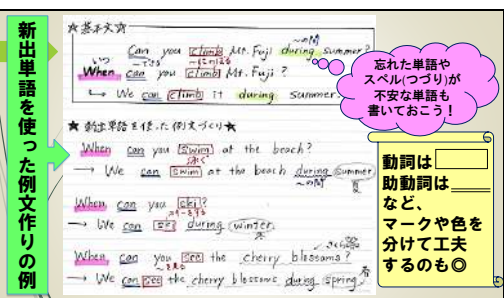 新出単語を使った例文作りの例
★基本文
〜の間
Can you climb Mt. Fuji during summer?
いつ 〜できる 〜にのぼる
When can you climb Mt. Fuji?
↳ We can climb it during summer.
★ 新出単語を使った例文づくり★
When can you swim at the beach?
泳ぐ
→ We can swim at the beach during summer.
〜の間 夏
When can you ski?
スキーをする
→ We can ski during winter.
冬
When can you see the cherry blossoms?
〜を見る
→ We can see the cherry blossoms during spring.
春
忘れた単語や
スペル(つづり)が
不安な単語も
書いておこう！
動詞は
助動詞は
など、
マークや色を
分けて工夫
するのも◎